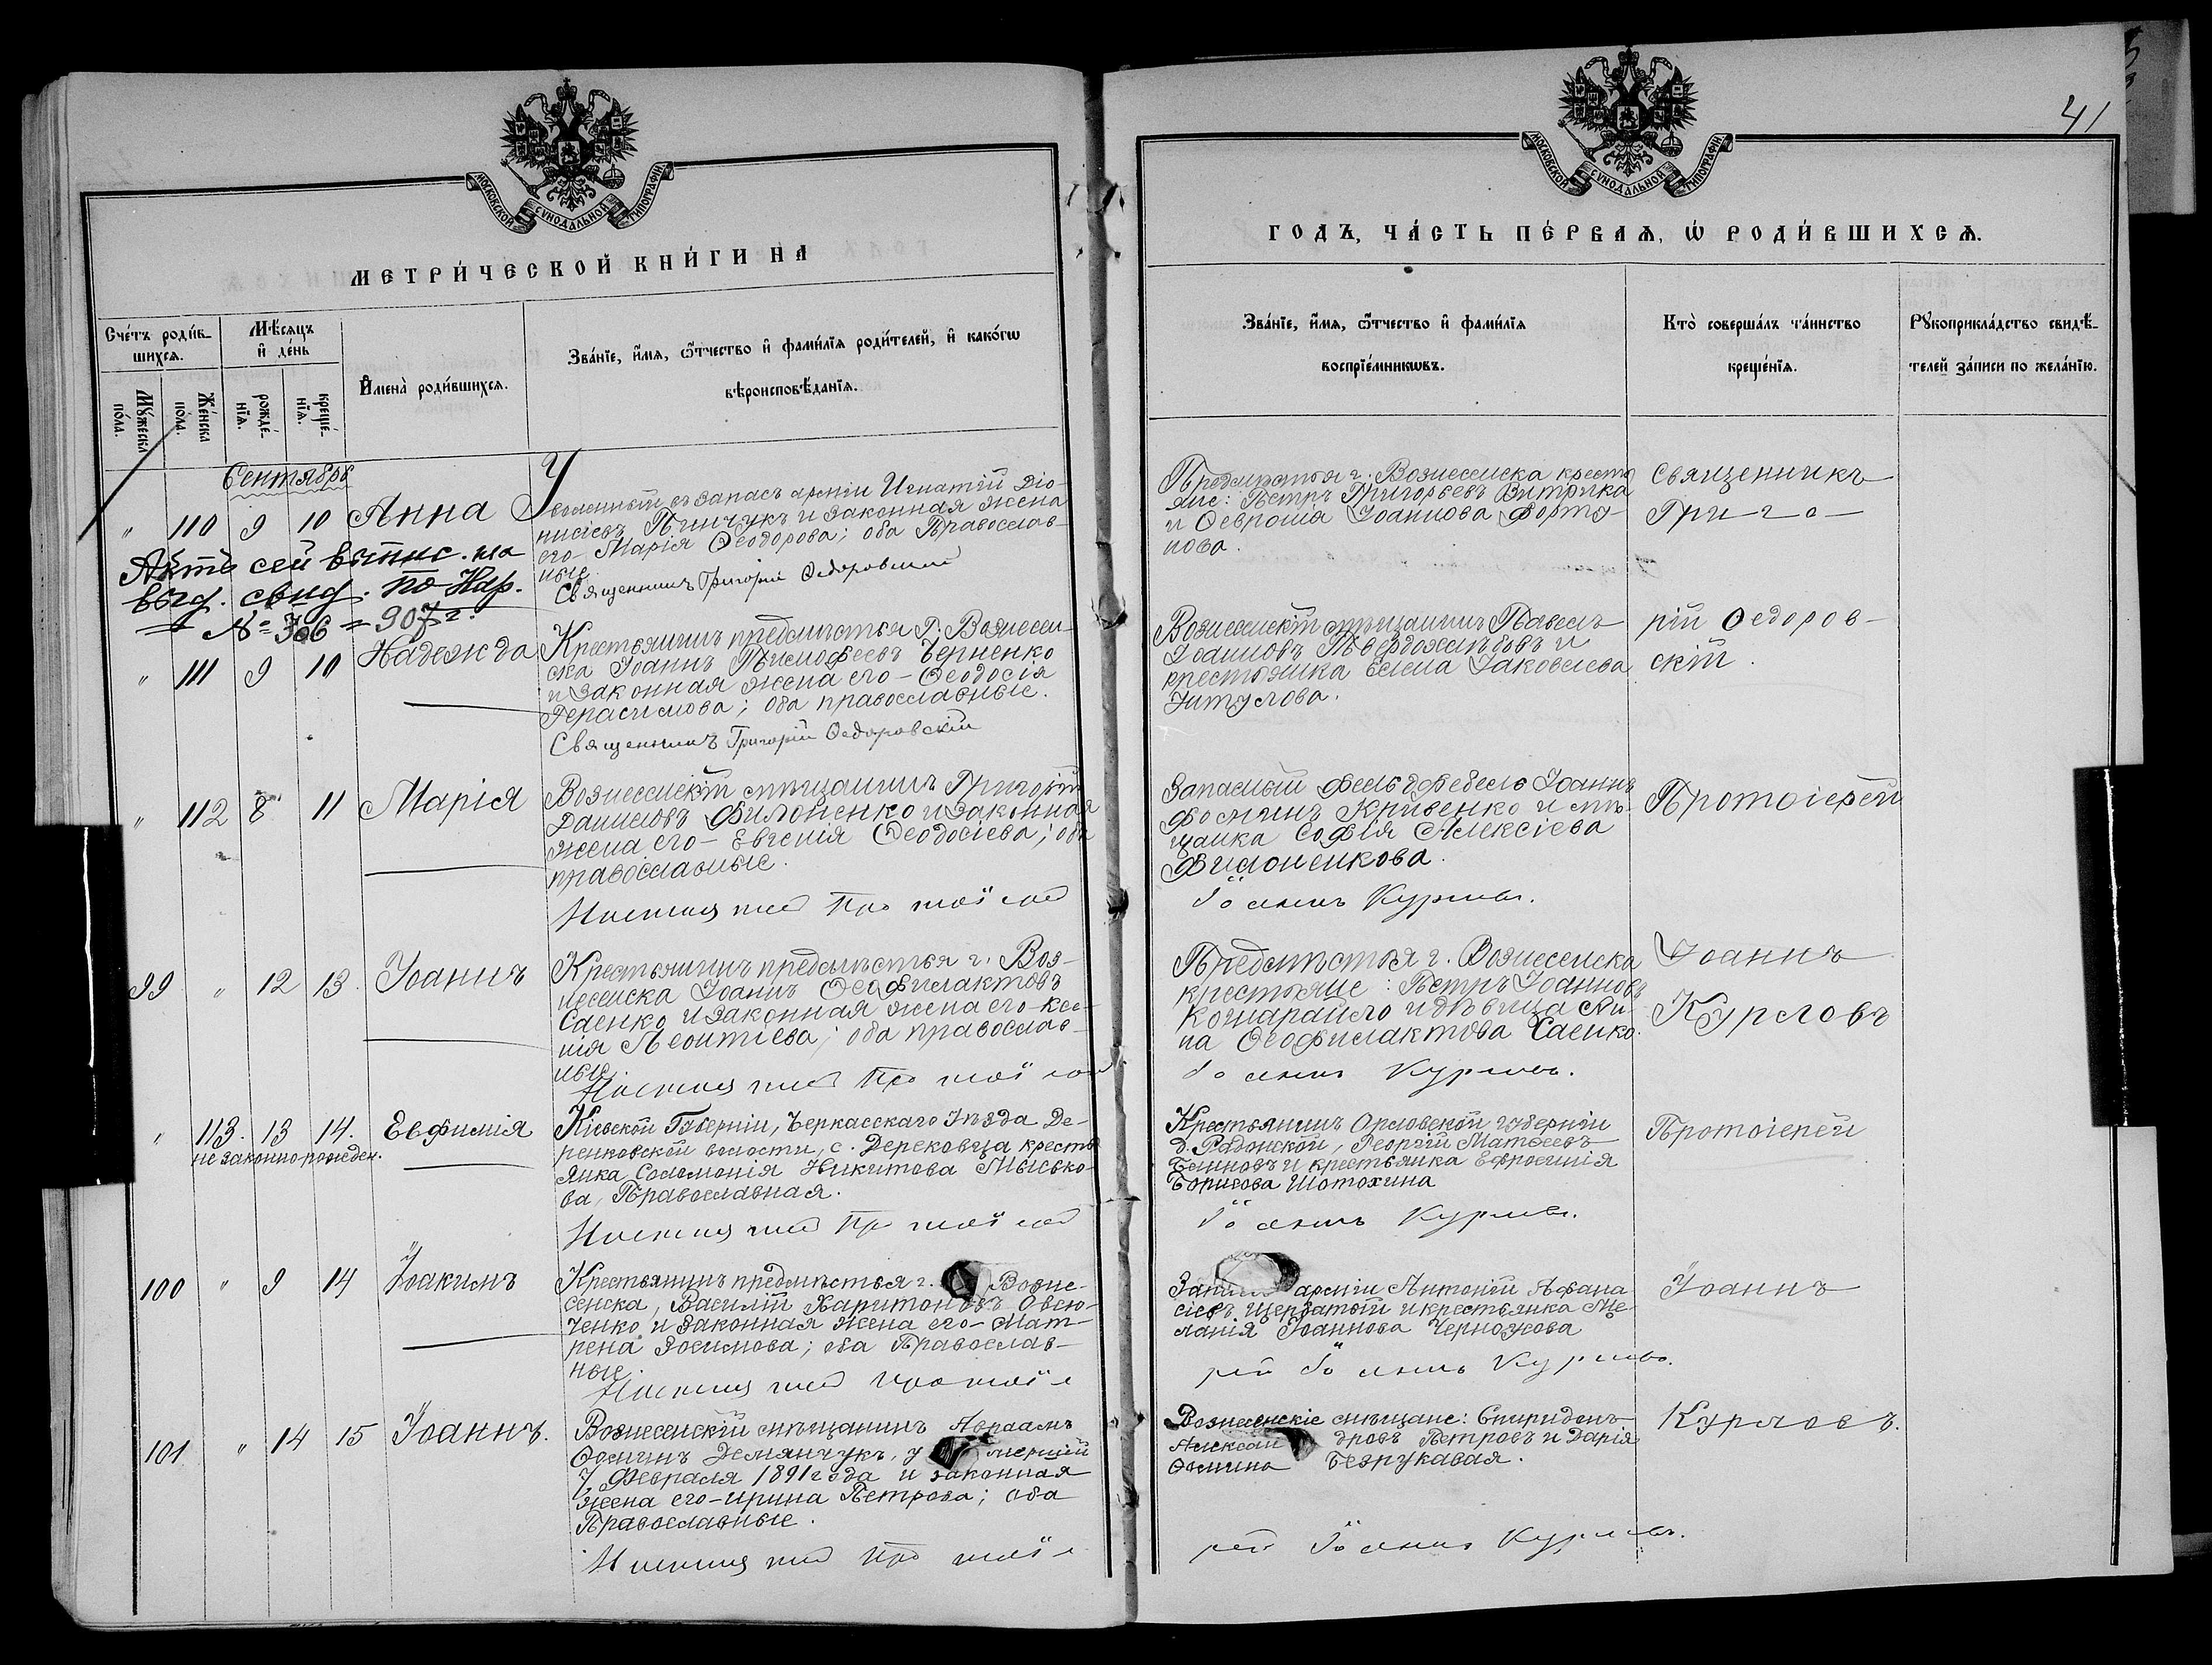 41
МОСКОВСКОЙ СѴНОДАЛЬНОЙ ТИПОГРАФІИ
МЕТРИ́ЧЕСКОЙ КНИ́ГИ НА
Сче́тъ роди́в-
шихсѧ.
Мѣ́сѧцъ
и҆ де́нь
Мꙋ́жеска
по́ла.
Же́нска
по́ла.
рожде́-
нїѧ.
креще́-
нїѧ.
И҆мена̀ роди́вшихсѧ.
Зва́нїе, и҆́мѧ, ѻ҆́тчество и҆ фамѝлїѧ роди́телей, и҆ како́гѡ
вѣроисповѣ́данїѧ.
Сентябрь
" 110 9 10 Анна
Уволенный въ запасъ арміи Игнатій Діо-
нисіевъ Пинчукъ и законная жена
его Марія Ѳеодорова; оба Православ-
ные.
Священникъ Григорій Ѳедоровскій
Актъ сей выпис. на
выд. свид. по Нар.
№ 306 = 907 г.
" 111 9 10 Надежда
Крестьянинъ предмѣстья г. Вознесен-
ска Іоаннъ Тимофеевъ Черненко
и законная жена его - Ѳеодосія
Герасимова; оба православные.
Священникъ Григорій Ѳедоровскій
" 112 8 11 Марія
Вознесенскій мѣщанинъ Григорій
Даниловъ Филоненко и законная
жена его - Евгенія Ѳеодосіева; оба
православные.
99 " 12 13. Іоаннъ
Крестьянинъ предмѣстья г. Воз-
несенска Іоаннъ Ѳеофилактовъ
Саенко и законная жена его - Ксе-
нія Леонтіева; оба православ-
ные.
" 113. 13 14. Евфимія
не законно рожден.
Кіевской Губерніи, Черкасскаго Уѣзда Де-
ренковской волости, с. Дерековца кресть-
янка Соломонія Никитова
Православная.
100 " 9 14 Іоакимъ
Крестьянинъ предмѣстья г. Возне-
сенска, Василій Харитоновъ Овсю-
ченко и законная жена его - Мат-
рена Зосимова; оба Православ-
ные.
101 " 14 15 Іоаннъ.
Вознесенскій мѣщанинъ Авраамъ
Ѳоминъ Демянчукъ, умершій
7 Февраля 1891 года и законная
жена его - Ирина Петрова; оба
Православные.
МОСКОВСКОЙ СѴНОДАЛЬНОЙ ТИПОГРАФІИ
ГОДЪ, ЧА́СТЬ ПЕ́РВАѦ, Ѡ҆ РОДИ́ВШИХСѦ.
Зва́нїе, и҆́мѧ, ѻ҆́тчество и҆ фамѝлїѧ
воспрїе́мникѡвъ.
Кто̀ соверша́лъ та́инство
креще́нїѧ.
Рꙋкоприкла́дство свидѣ́-
телей за́писи по жела́нїю.
Предмѣстья г. Вознесенска кресть-
яне: Петръ Григорьевъ Витрика
и Ѳевронія Іоаннова Форту-
нова.
Священникъ
Григо-
Вознесенскій мѣщанинъ Павелъ
Іоанновъ Твердохлѣбовъ и
крестьянка Елена Іаковлева
рій Ѳедоров-
скій.
Запасный фельдфебель Іоаннъ
Ѳоминъ Кривенко и мѣ-
щанка Софія Алексіева
Филоненкова.
Іоаннъ Курловъ.
Протоіерей
Предмѣстья г. Вознесенска
крестьяне: Петръ Іоанновъ
и дѣвица Ан-
на Ѳеофилактова Саенко.
Іоаннъ Курловъ.
Іоаннъ
Курловъ
Крестьянинъ Орловской губерніи
Георгій Матѳеевъ
и крестьянка Ефросинія
Борисова Шотохина
Іоаннъ Курловъ.
Протоіерей
арміи Антоній Афана
сіевъ Щербатый и крестьянка Ме-
ланія Іоаннова
рей Іоаннъ Курловъ.
Іоаннъ
Вознесенскіе мѣщане: Спиридонъ
Александровъ Петровъ и Дарія
Ѳомина Безрукавая.
рей Іоаннъ Курловъ.
Курловъ.